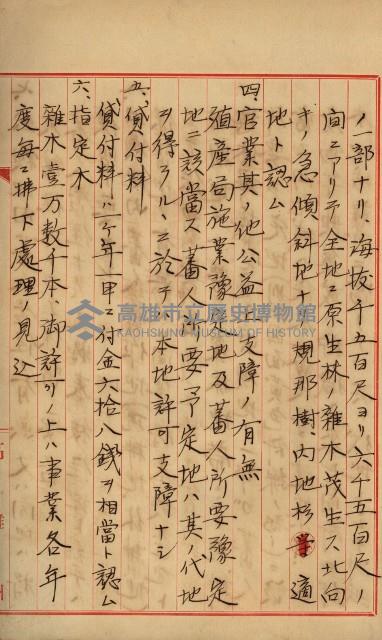 ノ一部ナリ、海抜千五百尺ヨリ六千五百尺ノ
間ニアリテ全地ニ原生林ノ雜木茂生ス、北向
ナノ急傾斜地ナ、規那樹、内地杉等適
地ト認ム
四、官業其ノ他公益上支障ノ有無
殖産局施業豫定地及蕃人所要豫定
地ニ該當ス蕃人所要予定地ハ其ノ代地
ヲ得ラル、ニ於テハ本地許可支障ナシ
五、貸付料
貸付料ハ一ケ年一甲ニ付金六拾八錢ヲ相當ト認ム
六、指定木
雜木壹万数千本御許可ノ上ハ事業各年
度毎ニ拂下處理ノ見込
高雄市立歷史博物館
KAOHSIUNG MUSEUM OF HISTORY